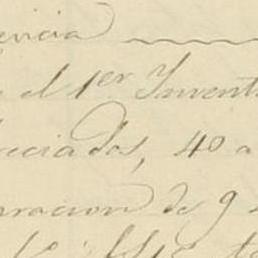 encia
el 1er Invent
reciados, 40 a
racion de 9